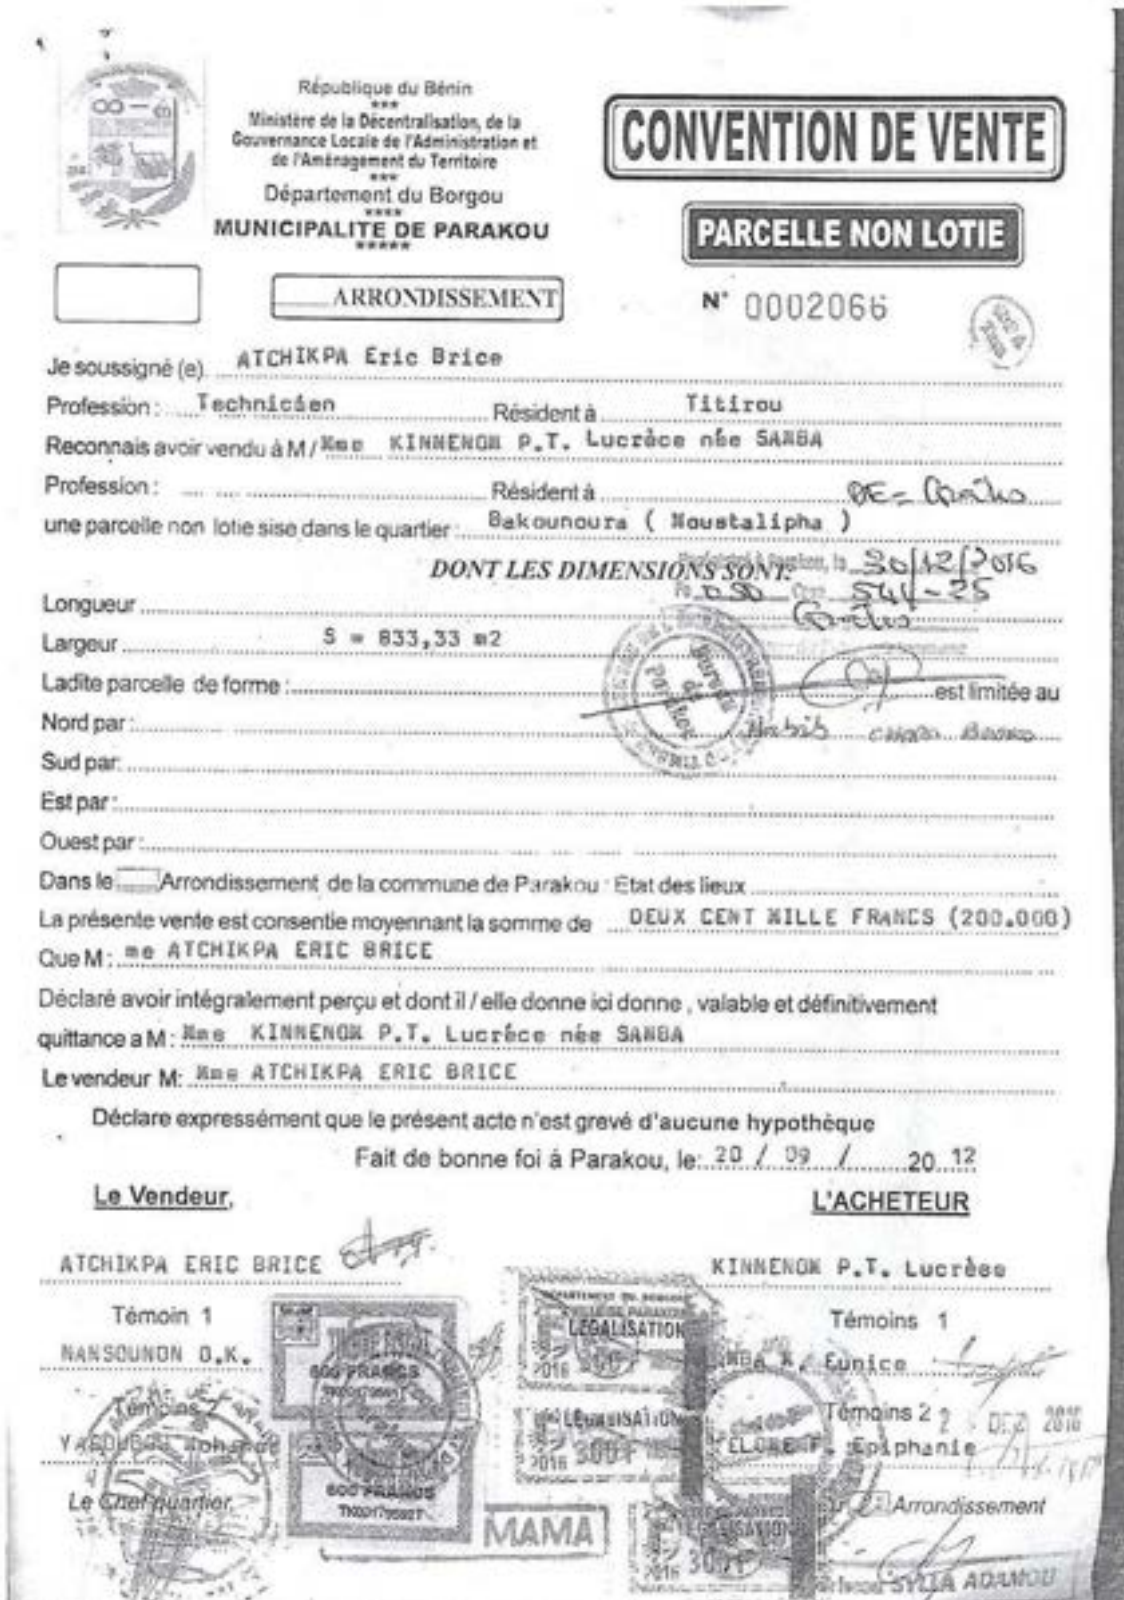 République du Bénin
***
Ministère de la Décentralisation, de la
Gouvernance Locale de l'Administration et
de l'Aménagement du Territoire
***
Département du Borgou
****
MUNICIPALITE DE PARAKOU
*****
CONVENTION DE VENTE
PARCELLE NON LOTIE
ARRONDISSEMENT
N° 0002066
Je soussigné (e) ATCHIKPA Eric Brice
Profession : Technicien Résident à Titirou
Reconnais avoir vendu à M / Mme KINNENOM P.T. Lucrèce née SAMBA
Profession : Résident à
une parcelle non lotie sise dans le quartier : Bakounoura ( Moustalipha )
DONT LES DIMENSIONS SONT: 30/12/2016
Longueur
Largeur S = 833,33 m2
Ladite parcelle de forme : est limitée au
Nord par :
Sud par:
Est par :
Ouest par :
Dans le Arrondissement de la commune de Parakou : Etat des lieux
La présente vente est consentie moyennant la somme de DEUX CENT MILLE FRANCS (200.000)
Que M : me ATCHIKPA ERIC BRICE
Déclaré avoir intégralement perçu et dont il / elle donne ici donne , valable et définitivement
quittance a M : Mme KINNENOM P.T. Lucréce née SAMBA
Le vendeur M: Mme ATCHIKPA ERIC BRICE
Déclare expressément que le présent acte n'est grevé d'aucune hypothèque
Fait de bonne foi à Parakou, le: 20 / 09 / 20 12
Le Vendeur, L'ACHETEUR
ATCHIKPA ERIC BRICE KINNENOM P.T. Lucrèse
Témoin 1 Témoins 1
NANSOUNON O.K. Eunice
LEGALISATION
600 FRANCS
2016
Témoins 2 Témoins 2
2 DEZ 2016
Epiphanie
LEGALISATION
2016 300 F
Le Chef quartier, Arrondissement
600 FRANCS
MAMA
300 F
SYLLA ADAMOU